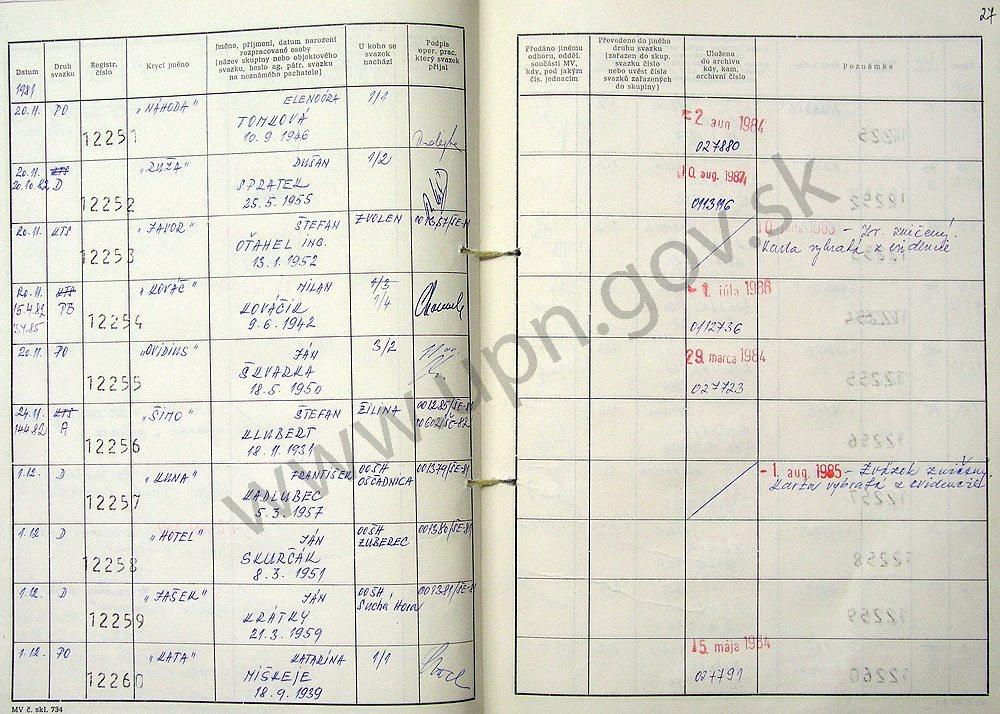 27
Datum
Druh svazku
Registr. číslo
Krycí jméno
Jméno, příjmení, datum narození
rozpracované osoby
(název skupiny nebo objektového
svazku, heslo ag. pátr. svazku
na neznámého pachatele)
U koho se
svazek
nachází
Podpis
oper. prac.
který svazek
přijal
Předáno jinému
odboru, odděl.
součásti MV,
kdy, pod jakým
čís. jednacím
Převedeno do jiného
druhu svazku
(zařazen do skup.
svazku číslo
nebo uvést čísla
svazků zařazených
do skupiny)
Uloženo
do archivu
kdy, kam,
archivní číslo
Poznámka
1981
20.11. PO 12251 „NÁHODA" ELENOÓRA 1/1
TOMKOVA
10.9.1946
2. aug 1984
027880
20.11. KTS
20.10.82 D 12252 „RUŽA" DUŠAN 1/2
SPRATEK
25.5.1955
10. aug. 1987
0113116
20.11. KTS 12253 „JAVOR" ŠTEFAN ZVOLEN
OŤAHEL ING.
13.1.1952
1983 - Zv. zničený.
Karta vybratá z evidencie
20.11. KTS „KOVÁČ" MILAN 1/3
15.4.82 PB 12254 KOVÁČIK 1/4
9.6.1942
- 1. júla 1986
0112736
20.11. PO 12255 „OVIDIUS" JÁN 3/2
ŠKVARKA
18.5.1950
29. marca 1984
027723
24.11. KTS „ŠIMO" ŠTEFAN ŽILINA 001285/ŠE-81
14.4.82 A 12256 KLUBERT
18.11.1931
1.12. D 12257 „KUNA" FRANTIŠEK OOŠH OŠČADNICA 001379/ŠE-81
KADLUBEC
5.3.1957
- 1. aug. 1985 - Zväzok zničený.
Karta vybratá z evidencie
1.12. D 12258 „HOTEL" JÁN OOŠH ZUBEREC 001380/ŠE-81
SKURČÁK
8.3.1951
1.12. D 12259 „JAŠEK" JÁN OOŠH Suchá Hora 001381/ŠE-81
KRÁTKY
21.3.1959
1.12. PO 12260 „KATA" KATARÍNA 1/1
MIŠKEJE
18.9.1939
15. mája 1984
027791
MV č. skl. 734
www.upn.gov.sk